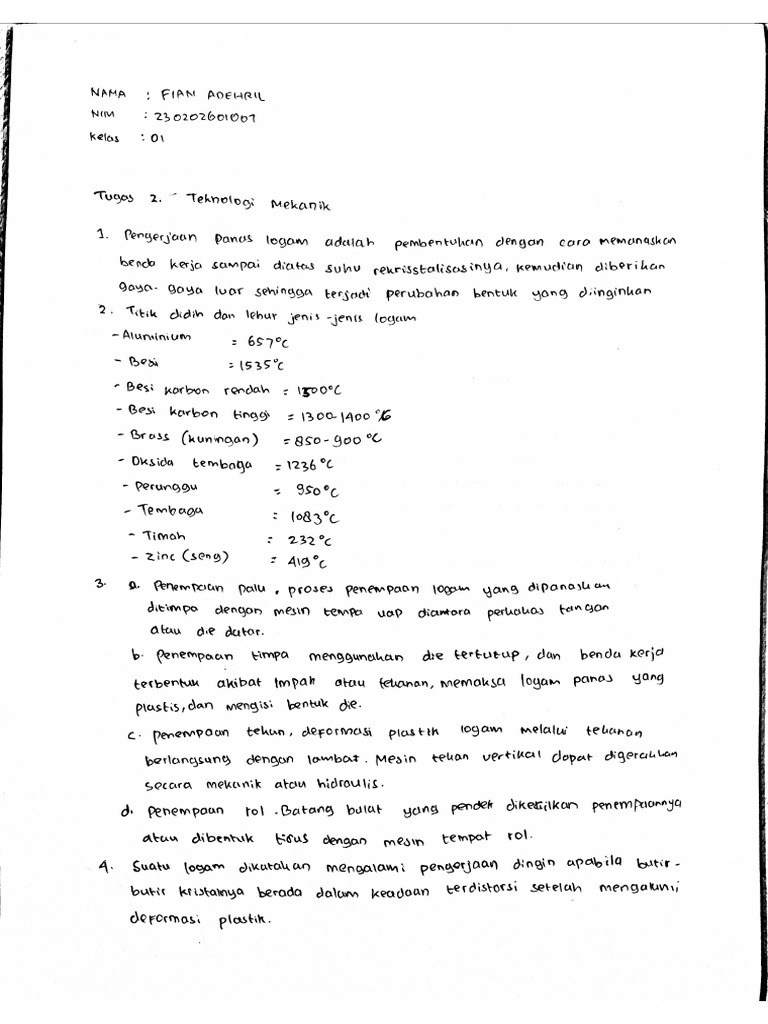 NAMA : FIAN ADEHRIL
NIM : 230202601007
Kelas : 01
Tugas 2. - Teknologi Mekanik
1. Pengerjaan Panas logam adalah pembentukan dengan cara memanaskan
benda kerja sampai diatas suhu rekrisstalisasinya, kemudian diberikan
gaya-gaya luar sehingga terjadi perubahan bentuk yang diinginkan
2. Titik didih dan lebur jenis-jenis logam
- Aluminium = 657°C
- Besi = 1535°C
- Besi karbon rendah = 1500°C
- Besi karbon tinggi = 1300-1400 °C
- Brass (kuningan) = 850-900 °C
- Oksida tembaga = 1236°C
- Perunggu = 950°C
- Tembaga = 1083°C
- Timah = 232°C
- Zinc (seng) = 419°C
3. a. Penempaan palu, proses penempaan logam yang dipanaskan
ditimpa dengan mesin tempa uap diantara perkakas tangan
atau die datar.
b. Penempaan timpa menggunakan die tertutup, dan benda kerja
terbentuk akibat impak atau tekanan, memaksa logam panas yang
plastis, dan mengisi bentuk die.
c. Penempaan tekan, deformasi plastik logam melalui tekanan
berlangsung dengan lambat. Mesin tekan vertikal dapat digerakkan
secara mekanik atau hidraulis.
d. Penempaan rol. Batang bulat yang pendek dikecilkan penempaannya
atau dibentuk tirus dengan mesin tempat rol.
4. Suatu logam dikatakan mengalami pengerjaan dingin apabila butir-
butir kristalnya berada dalam keadaan terdistorsi setelah mengalami
deformasi plastik.